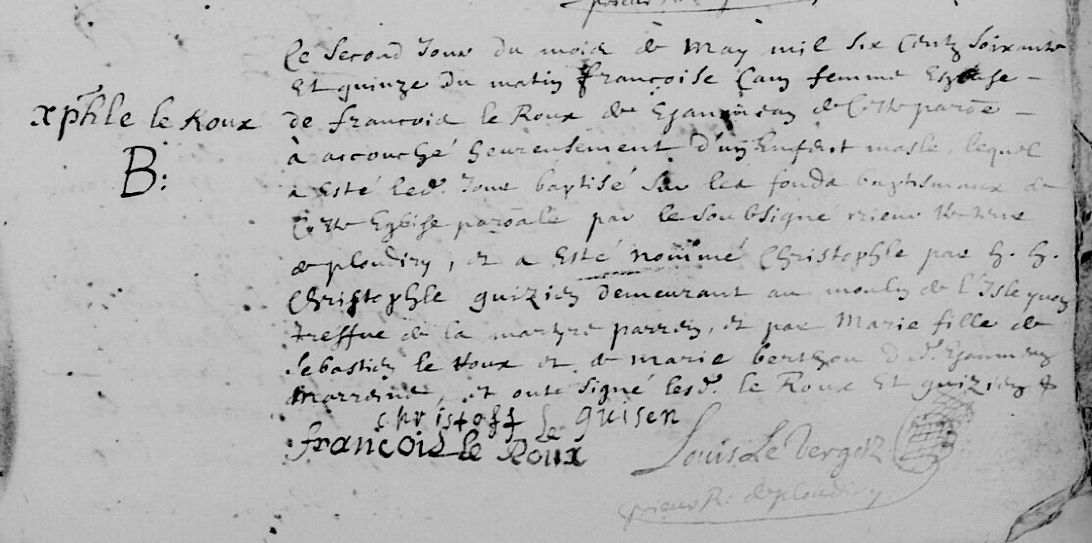 Le second Jour du mois de May mil six centz soixante
Et quinze du matin françoise Cam femme Espouse
xphle le Roux
de francois le Roux de de cette paroe
B:
à accouché heureusement d'un Enfant masle, lequel
a Esté led. Jour baptisé sur les fonds baptismaux de
Cette Eglise paroalle par le soubsigné prieur
de ploudiry, et a Esté nommé Christophle par h. h.
Christophle guizien demeurant au moulin de l'Isle
treffue de la martyre parrein, et par Marie fille de
Sebastien le Roux et de marie
Marreine, et onte signé lesd. le Roux Et guizien
christoff le guisen
françois le Roux
Louis Le Vergoz
prieur R. de ploudiry